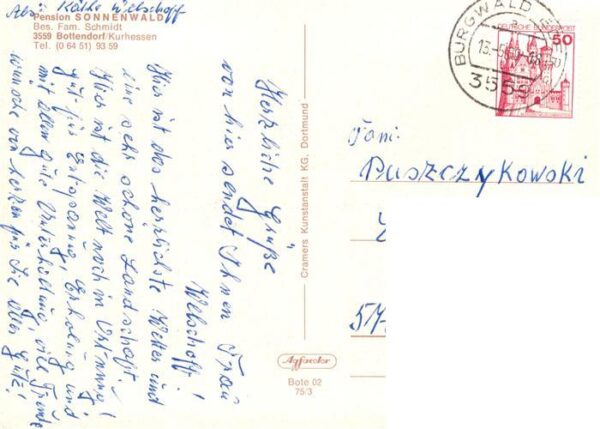 Abs: Käthe Welschoff
Pension SONNENWALD
Bes. Fam. Schmidt
3559 Bottendorf/Kurhessen
Tel. (0 64 51) 93 59
Herzliche Grüße
von hier sendet Ihnen Frau
Welschoff!
Hier ist das herzlichste Wetter und
eine sehr schöne Landschaft!
Hier ist die Welt noch in
Gut für Entspannung, Erholung und
mit allem gute Unterhaltung, viel Freude
wünsche von herzen für Sie Alles Gute!
Cramers Kunstanstalt KG, Dortmund
Agfacolor
Bote 02
75/3
BURGWALD
3559
DEUTSCHE BUNDESPOST
50
Pani:
Puszczykowski
57-